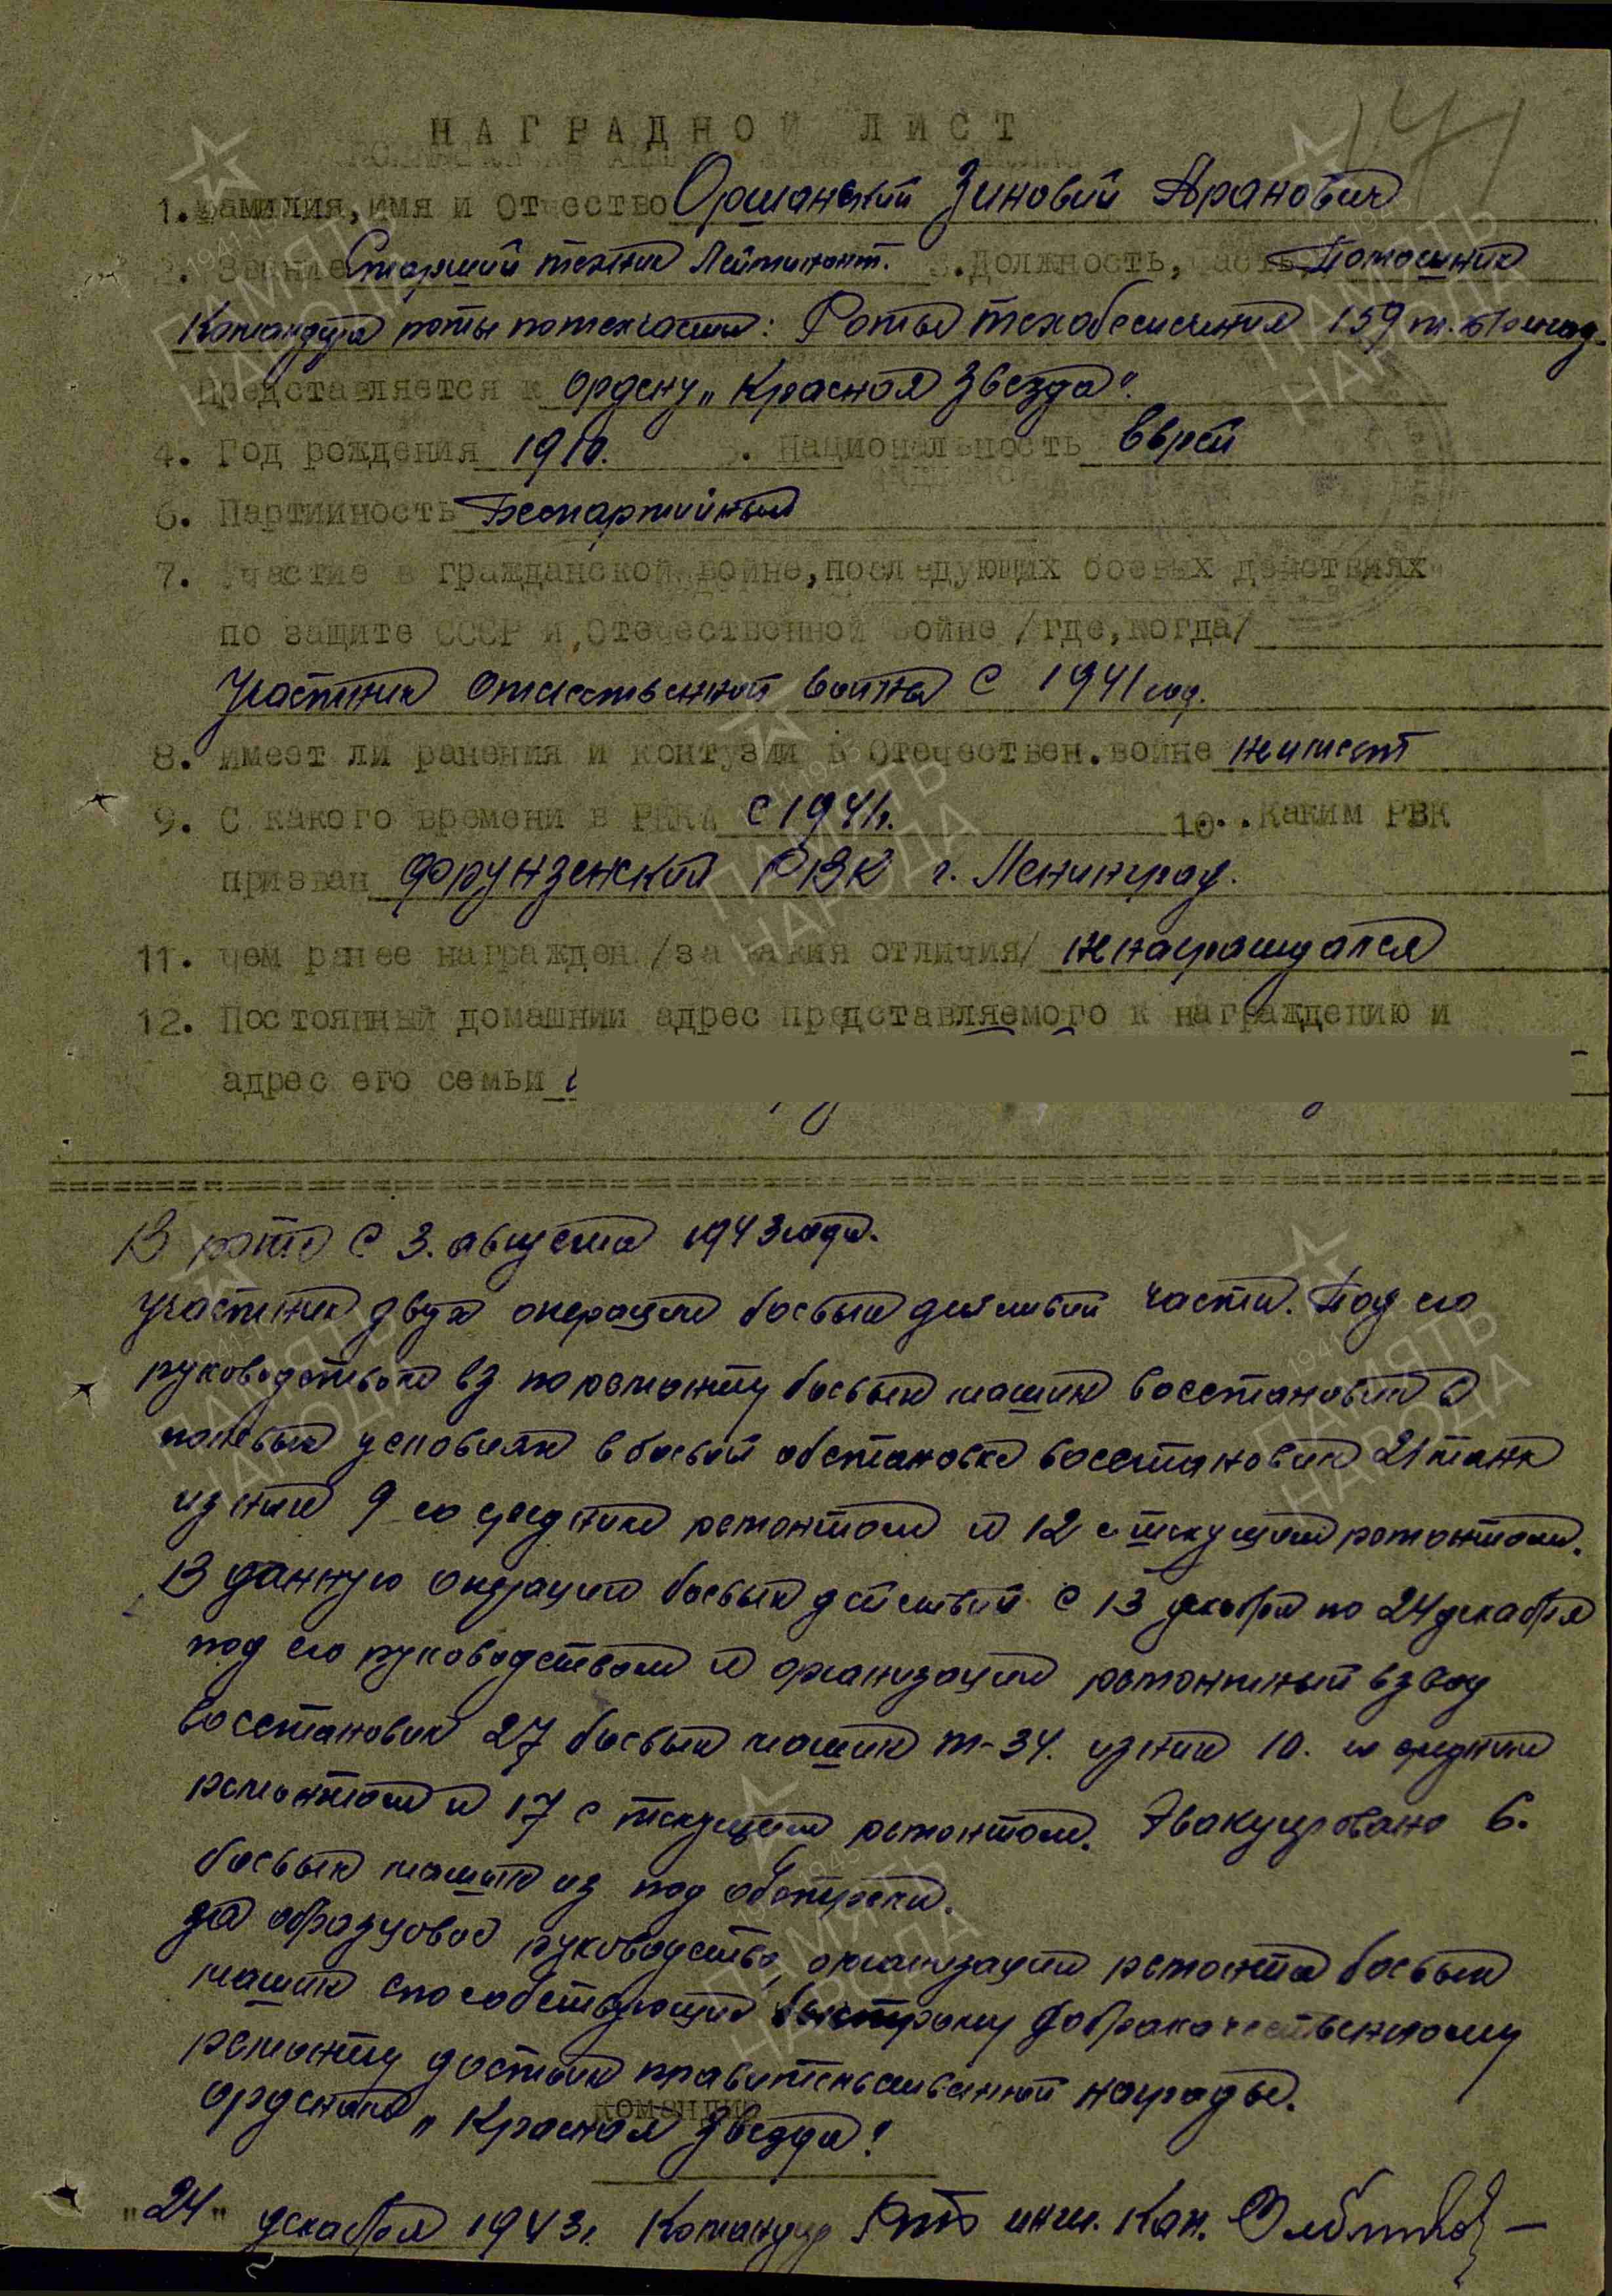 НАГРАДНОЙ ЛИСТ
1. Фамилия, имя и Отчество Оршанский Зиновий Аранович
2. Звание Старший техник Лейтинант. 3. Должность, часть Помошник
Командира роты потехчасти: Роты техобесичения 159 т. Бригад.
Представляется к ордену „Красная Звезда".
4. Год рождения 1910. 5. Национальность Еврей
6. Партийность Беспартийный
7. Участие в гражданской войне, последующих боевых действиях
по защите СССР и Отечественной войне /где, когда/
Участник отечественной войны с 1941 год.
8. имеет ли ранения и контузии в Отечествен. войне не имеет
9. С какого времени в РККА с 1941г. 10. Каким РВК
призван Фрунзенский РВК г. Ленинград.
11. чем ранее награжден /за какия отличия/ не награждался
12. Постоянный домашний адрес представляемого к награждению и
адрес его семьи
В роте с 3. августа 1943 года.
Участник двух операций боевых действий части. Под его
руководством вз по ремонту боевых машин восстановил в
полевых условиях в боевой обстановке восстановил 21 танк
из них 9 со средним ремонтом и 12 с текущим ремонтом.
В данную операцию боевых действий с 13 декабря по 24 декабря
под его руководством и организации ремонтный взвод
восстановил 27 боевых машин т-34. из них 10. со средним
ремонтом и 17 с текущем ремонтом. Эвакуировано 6.
боевых машин из под обстрела.
за образцовое руководство, организации ремонта боевых
машин способствующие быстрому доброкачественному
ремонту достоин правительственной награды.
командир
орденом „Красная Звезда!
"24" декабря 1943г. Командир Рто инж. Кап.